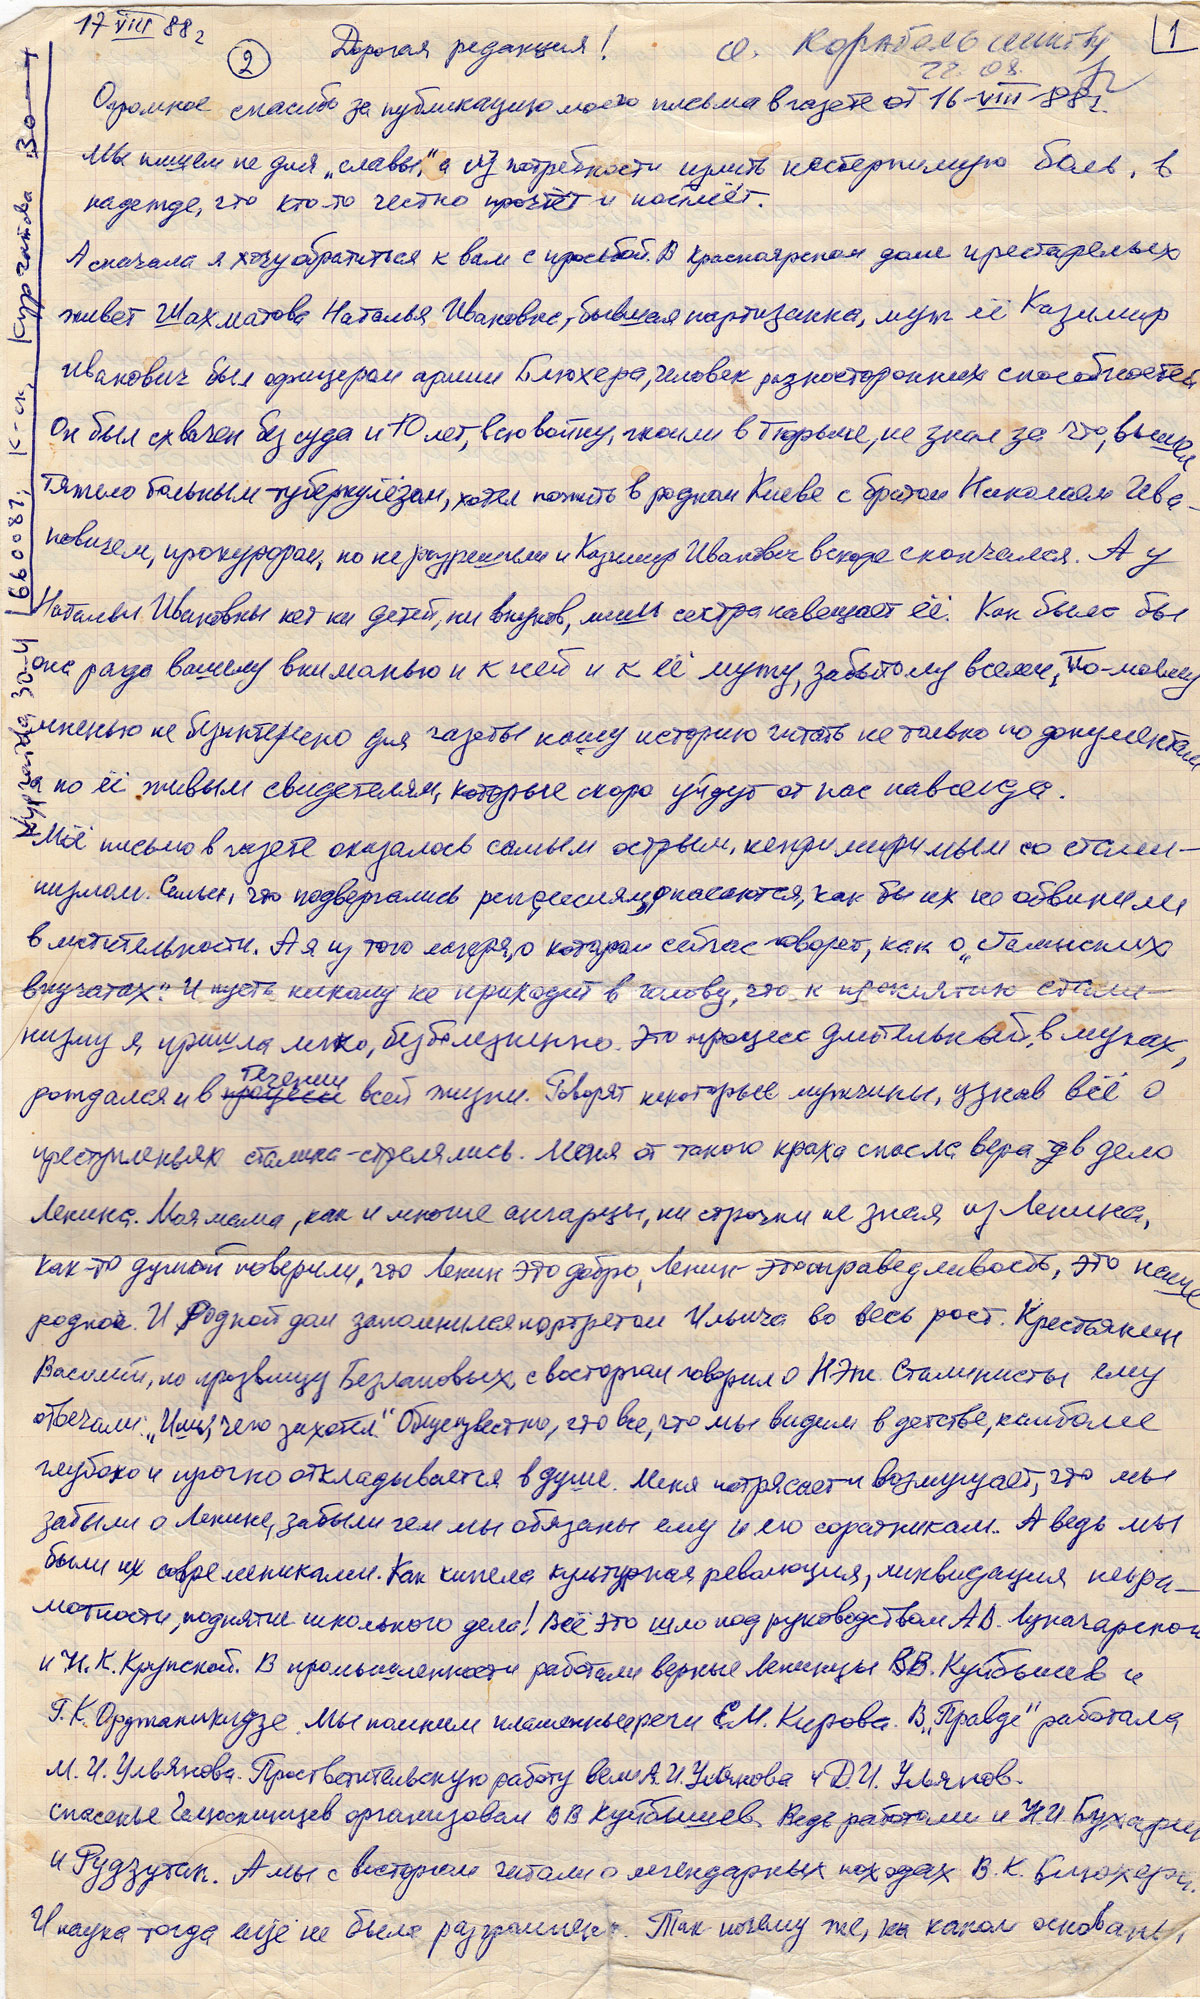 17 VIII 88г
2
Дорогая редакция!
1
22.08.
Огромное спасибо за публикацию моего письма в газете от 16-VIII-88г.
Мы пишем не для „славы", а из потребности излить нестерпимую боль, в
надежде, что кто-то честно прочтёт и поймёт.
А сначала я хочу обратиться к вам с просьбой. В Красноярском доме престарелых
живет Шахматова Наталья Ивановна, бывшая партизанка, муж её Казимир
Иванович был офицером армии Блюхера, человек разносторонних способностей
Он был схвачен без суда и 10 лет, всю войну, гноили в тюрьме, не знал за что, вышел
тяжело больным туберкулёзом, хотел пожить в родном Киеве с братом Николаем Ива-
новичем, прокурором, но не разрешили и Казимир Иванович вскоре скончался. А у
Натальи Ивановны нет ни детей, ни внуков, лишь сестра навещает её. Как была бы
она рада вашему вниманью и к ней и к её мужу, забытому всеми, По-моему
мненью не безинтересно для газеты нашу историю читать не только по документам
а по её живым свидетелям, которые скоро уйдут от нас навсегда.
Моё письмо в газете оказалось самым острым, непримиримым со стали-
низмом. Семьи, что подвергались репрессиям, опасаются, как бы их не обвинили
в мстительности. А я из того лагеря, о котором сейчас говорят, как о „сталинских
внучатах". И пусть никому не приходит в голову, что к проклятию стали-
низму я пришла легко, безболезненно. Это процесс длительный, в муках,
рождался и в течении всей жизни. Говорят некоторые мужчины, узнав всё о
преступленьях сталина-стрелялись. Меня от такого краха спасла вера в дело
Ленина. Моя мама, как и многие ангарцы, ни строчки не зная из Ленина,
как-то душой поверили, что Ленин это добро, Ленин-это справедливость, это наше
родное. И Родной дом запомнился портретом Ильича во весь рост. Крестьянин
Василий, по прозвищу Безлаповых, с восторгом говорил о НЭПе. Сталинисты ему
отвечали: „Ишь, чего захотел". Общеизвестно, что все, что мы видим в детстве, наиболее
глубоко и прочно откладывается в душе. Меня потрясает и возмущает, что мы
забыли о Ленине, забыли чем мы обязаны ему и его соратникам. А ведь мы
были их современниками. Как кипела культурная революция, ликвидация негра-
мотности, поднятие школьного дела! Всё это шло под руководством А.В. Луначарского
и Н.К. Крупской. В промышленности работали верные Ленинцы В.В. Куйбышев и
Г.К. Орджаникидзе. Мы помним пламенные речи С.М. Кирова. В „Правде" работала
М.И. Ульянова. Просветительскую работу вели А.И. Ульянова и Д.И. Ульянов.
спасенье Челюскинцев организовал В В Куйбышев. Ведь работали и Н И Бухарин
и Рудзутак. А мы с восторгом читали о легендарных походах В.К. Блюхера.
И наука тогда ещё не была разгромлена. Так почему же, на каком основаньи,
660087, К-ск, Курчатова 30-4
Курчатова 30-4